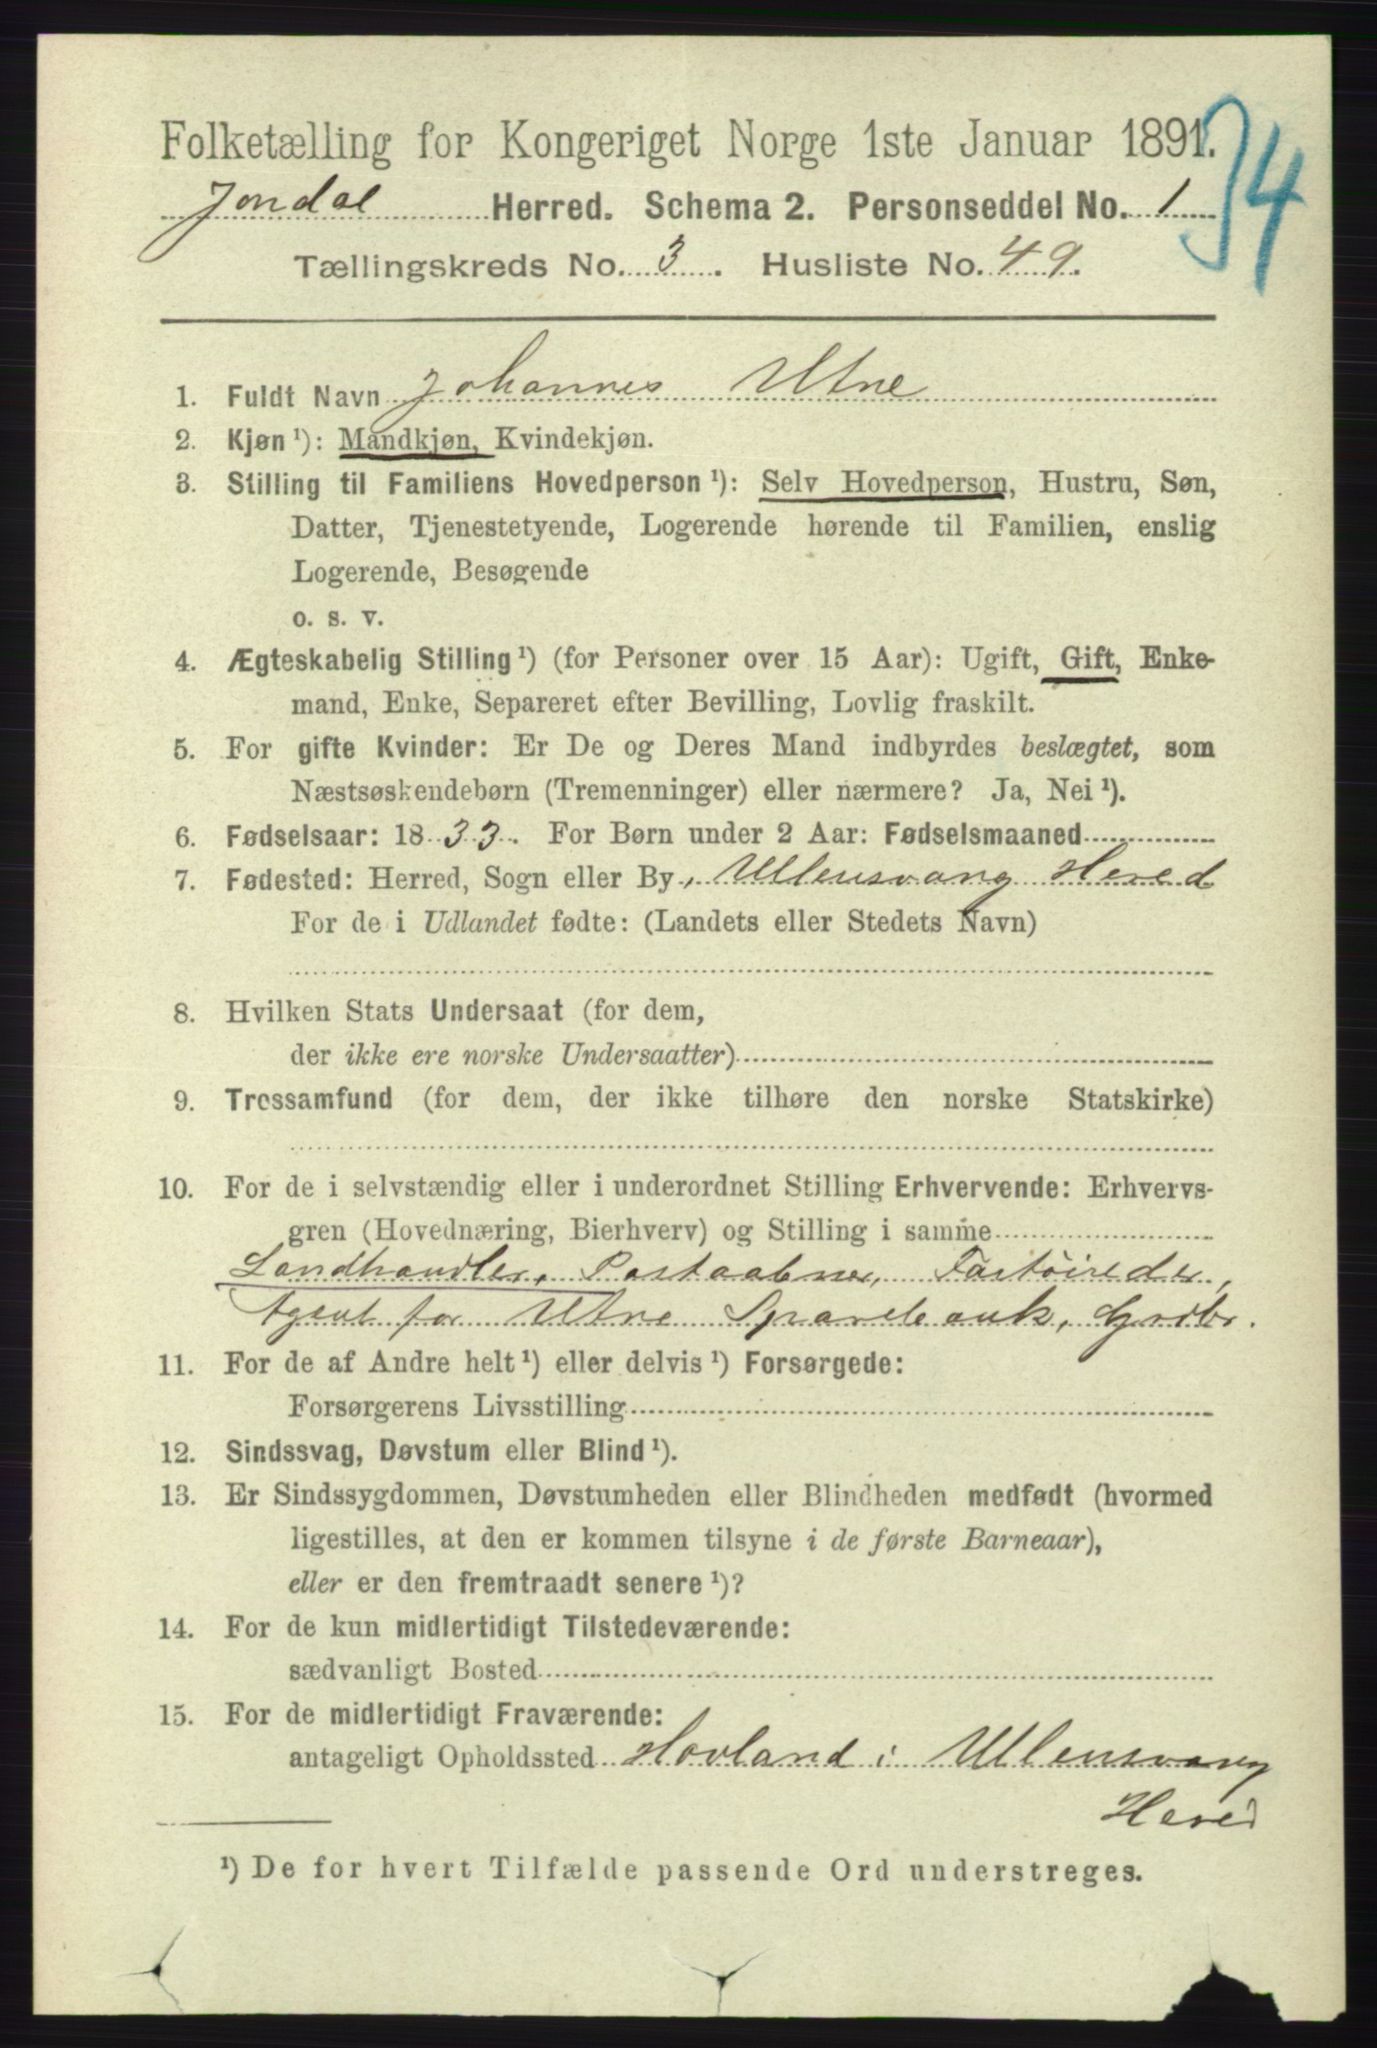 Folketælling for Kongeriget Norge 1ste Januar 1891.
34
Jondal Herred. Schema 2. Personseddel No. 1
Tællingskreds No. 3. Husliste No. 49.
1. Fuldt Navn Johannes Utne
2. Kjøn ¹): Mandkjøn, Kvindekjøn.
3. Stilling til Familiens Hovedperson ¹): Selv Hovedperson, Hustru, Søn,
Datter, Tjenestetyende, Logerende hørende til Familien, enslig
Logerende, Besøgende
o. s. v.
4. Ægteskabelig Stilling ¹) (for Personer over 15 Aar): Ugift, Gift, Enke-
mand, Enke, Separeret efter Bevilling, Lovlig fraskilt.
5. For gifte Kvinder: Er De og Deres Mand indbyrdes beslægtet, som
Næstsøskendebørn (Tremenninger) eller nærmere? Ja, Nei ¹).
6. Fødselsaar: 1833. For Børn under 2 Aar: Fødselsmaaned
7. Fødested: Herred, Sogn eller By, Ullensvang Hered
For de i Udlandet fødte: (Landets eller Stedets Navn)
8. Hvilken Stats Undersaat (for dem,
der ikke ere norske Undersaatter)
9. Trossamfund (for dem, der ikke tilhøre den norske Statskirke)
10. For de i selvstændig eller i underordnet Stilling Erhvervende: Erhvervs-
gren (Hovednæring, Bierhverv) og Stilling i samme
Landhandler, Postaabner,
Agent for Utne Sparebank, Grdbr.
11. For de af Andre helt ¹) eller delvis ¹) Forsørgede:
Forsørgerens Livsstilling
12. Sindssvag, Døvstum eller Blind ¹).
13. Er Sindssygdommen, Døvstumheden eller Blindheden medfødt (hvormed
ligestilles, at den er kommen tilsyne i de første Barneaar),
eller er den fremtraadt senere ¹)?
14. For de kun midlertidigt Tilstedeværende:
sædvanligt Bosted
15. For de midlertidigt Fraværende:
antageligt Opholdssted Hovland i Ullensvang
Hered
¹) De for hvert Tilfælde passende Ord understreges.